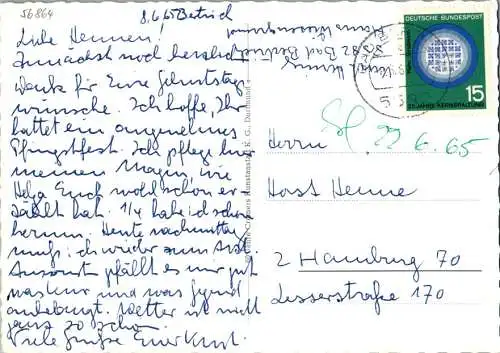 56864
8.6.65 Bertrich
Liebe Hennen!
Zunächst noch herzlich
Dank für Eure Geburtstags
wünsche. Ich hoffe, Ihr
hattet ein angenehmes
Pfingstfest. Ich pflege hier
meinen Magen, wie
Helga Euch wohl schon er
zählt hat. 1/4 habe ich schon
herum. Heute nachmittag
muß ich wieder zum Arzt.
Ansonst gfällt es mir gut
was Kur und was Jugend
anbelangt. Wetter ist nicht
ganz so schön.
Viele Grüße Euer Kurt.
Cramers Kunstanstalt K. G., Dortmund
5582 Bad Bertrich
DEUTSCHE BUNDESPOST
15
25 JAHRE KERNSPALTUNG
22.6.65
Herrn
Horst Henne
2 Hamburg 70
Lesserstraße 170